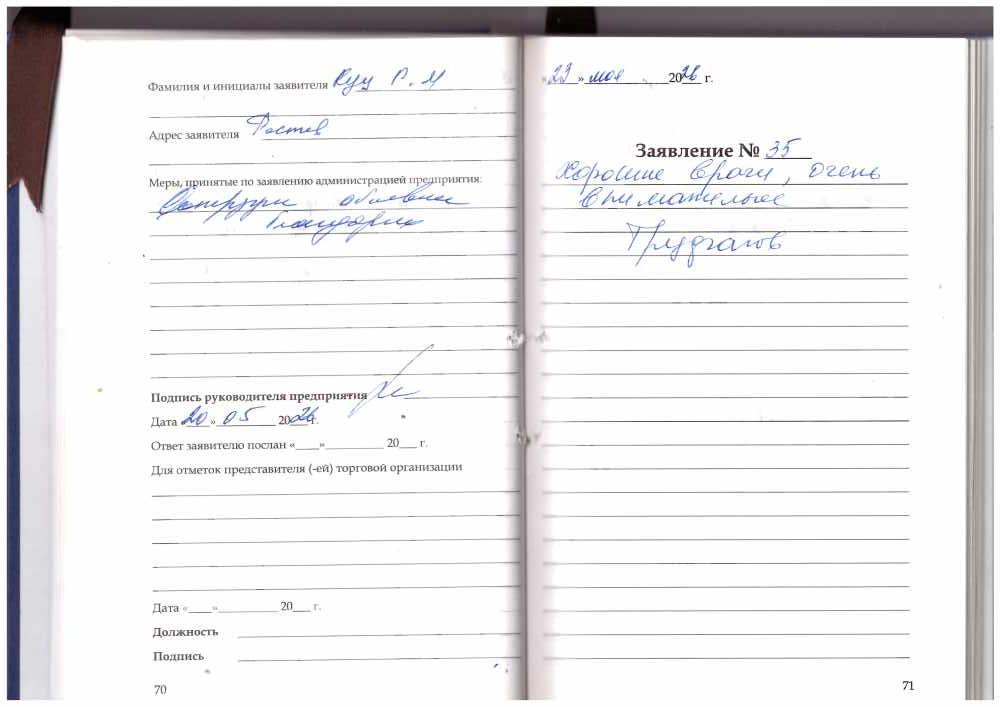 Фамилия и инициалы заявителя Куц Р. М
Адрес заявителя Ростов
Меры, принятые по заявлению администрацией предприятия:
объявлена
Подпись руководителя предприятия
Дата «20» 05 2026 г.
Ответ заявителю послан «___»__________ 20___ г.
Для отметок представителя (-ей) торговой организации
Дата «____»__________ 20___ г.
Должность
Подпись
70
«23» мая 2026 г.
Заявление № 35
Хорошие врачи, очень
внимательные
71